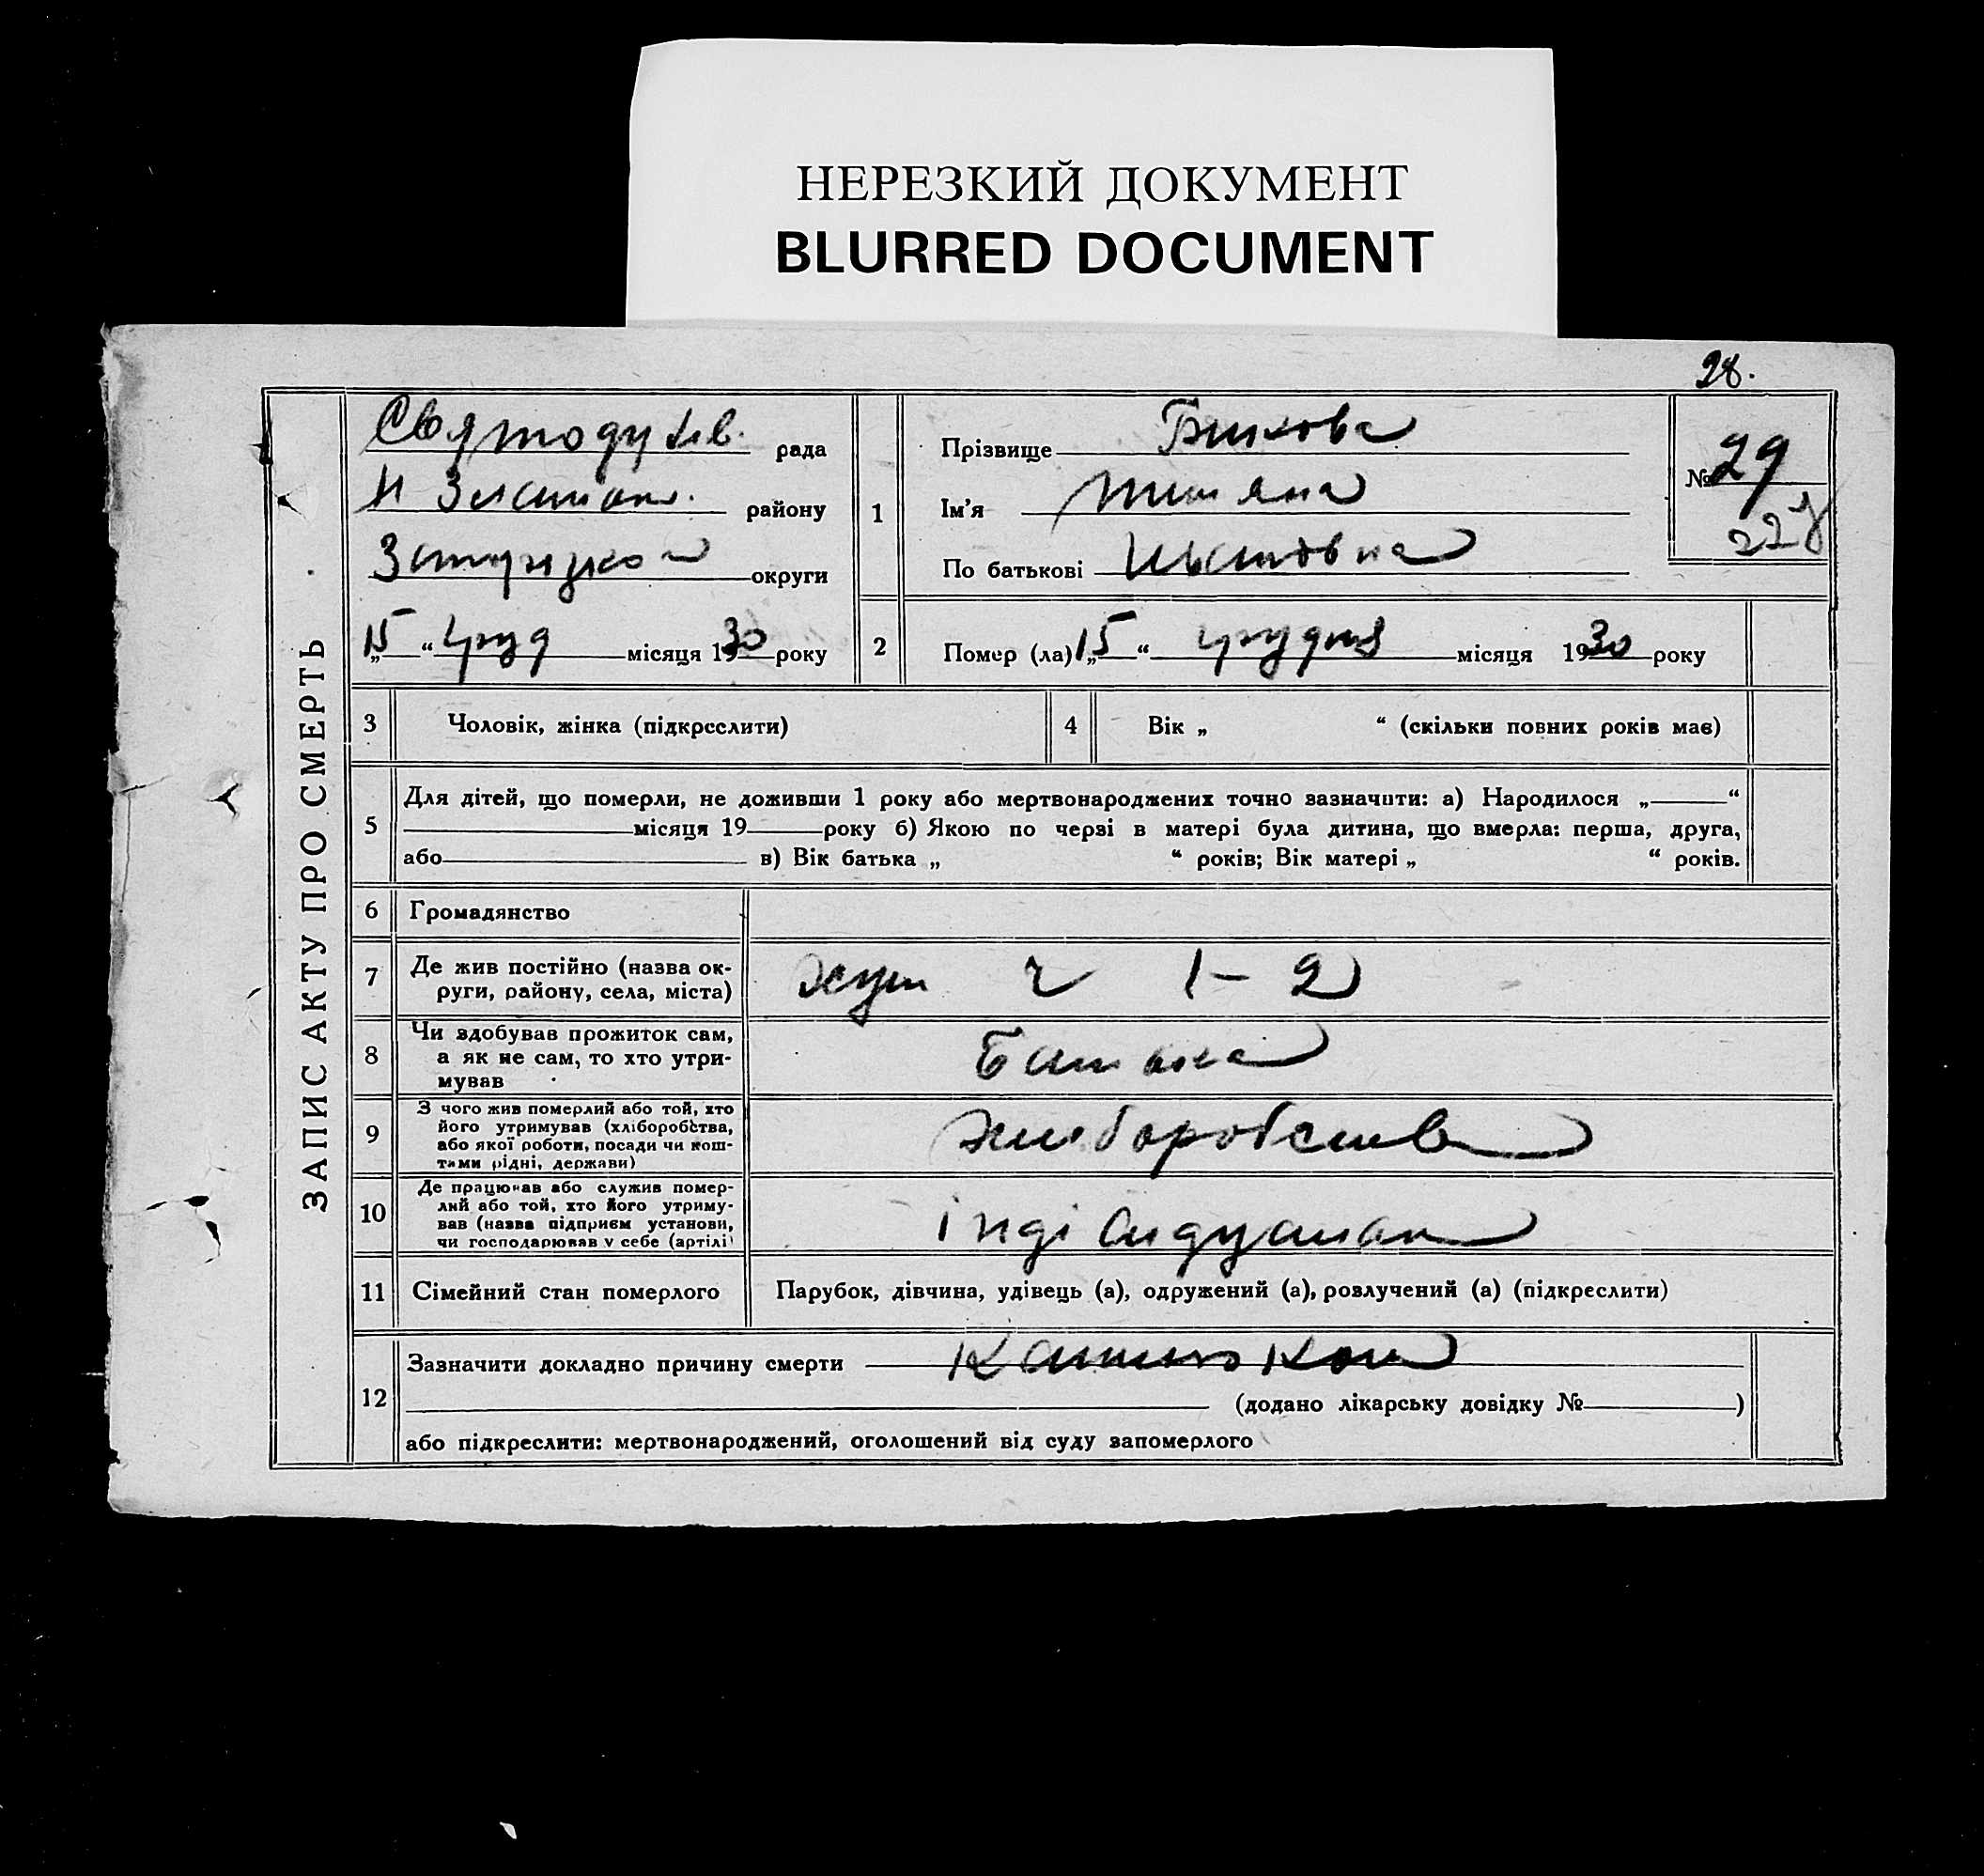 НЕРЕЗКИЙ ДОКУМЕНТ
BLURRED DOCUMENT
28.
ЗАПИС АКТУ ПРО СМЕРТЬ.
рада
району
округи
„15“ груд місяця 1930 року
1
Прізвище Бикова
Ім'я Титяна
По батькові
№ 29
22
2
Помер (ла) „15“ грудня місяця 1930 року
3
Чоловік, жінка (підкреслити)
4
Вік „ “ (скільки повних років має)
5
Для дітей, що померли, не доживши 1 року або мертвонароджених точно зазначити: а) Народилося „ “
місяця 19 року б) Якою по черзі в матері була дитина, що вмерла: перша, друга,
або в) Вік батька „ “ років; Вік матері „ “ років.
6
Громадянство
7
Де жив постійно (назва ок-
руги, району, села, міста)
хут ч 1-2
8
Чи здобував прожиток сам,
а як не сам, то хто утри-
мував
Батька
9
З чого жив померлий або той, хто
його утримував (хліборобства,
або якої роботи, посади чи кош-
тами рідні, держави)
хліборобств
10
Де працював або служив помер-
лий або той, хто його утриму-
вав (назва підприєм установи,
чи господарював у себе (артілі)
11
Сімейний стан померлого
Парубок, дівчина, удівець (а), одружений (а), розлучений (а) (підкреслити)
12
Зазначити докладно причину смерти
(додано лікарську довідку № )
або підкреслити: мертвонароджений, оголошений від суду запомерлого